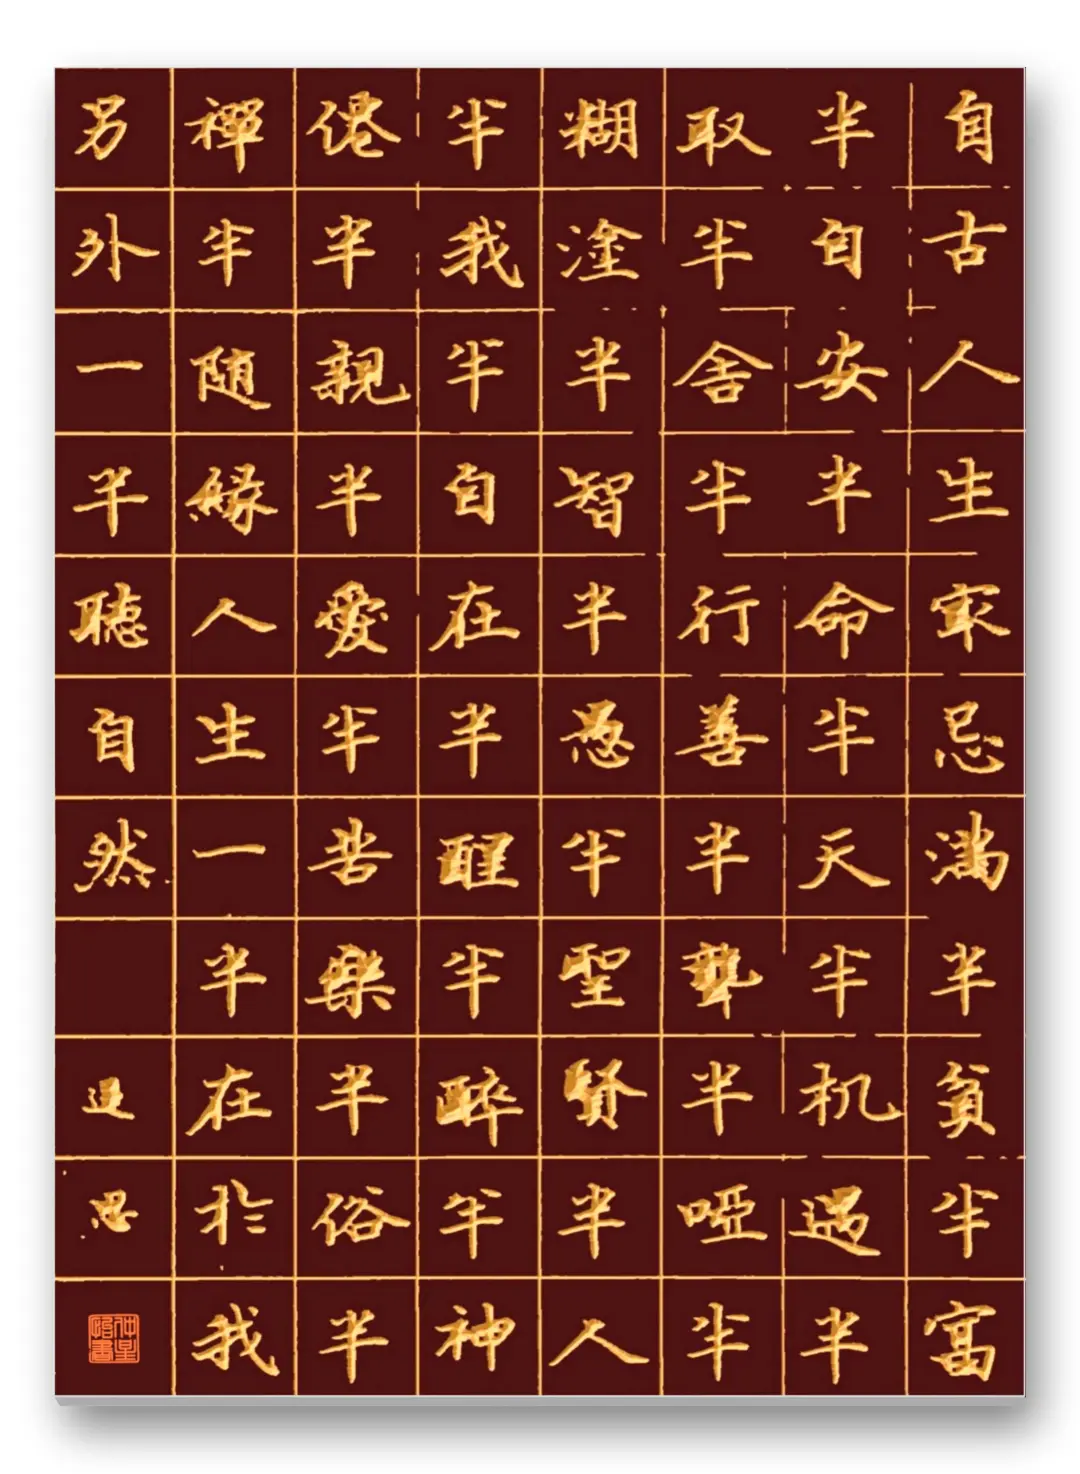 自古人生最忌滿半貧半富
半自安半命半天半机遇半
取半舍半行善半聾半啞半
糊塗半智半愚半聖賢半人
半我半自在半醒半醉半神
僊半親半愛半苦樂半俗半
禪半随緣人生一半在於我
另外一半聽自然
思